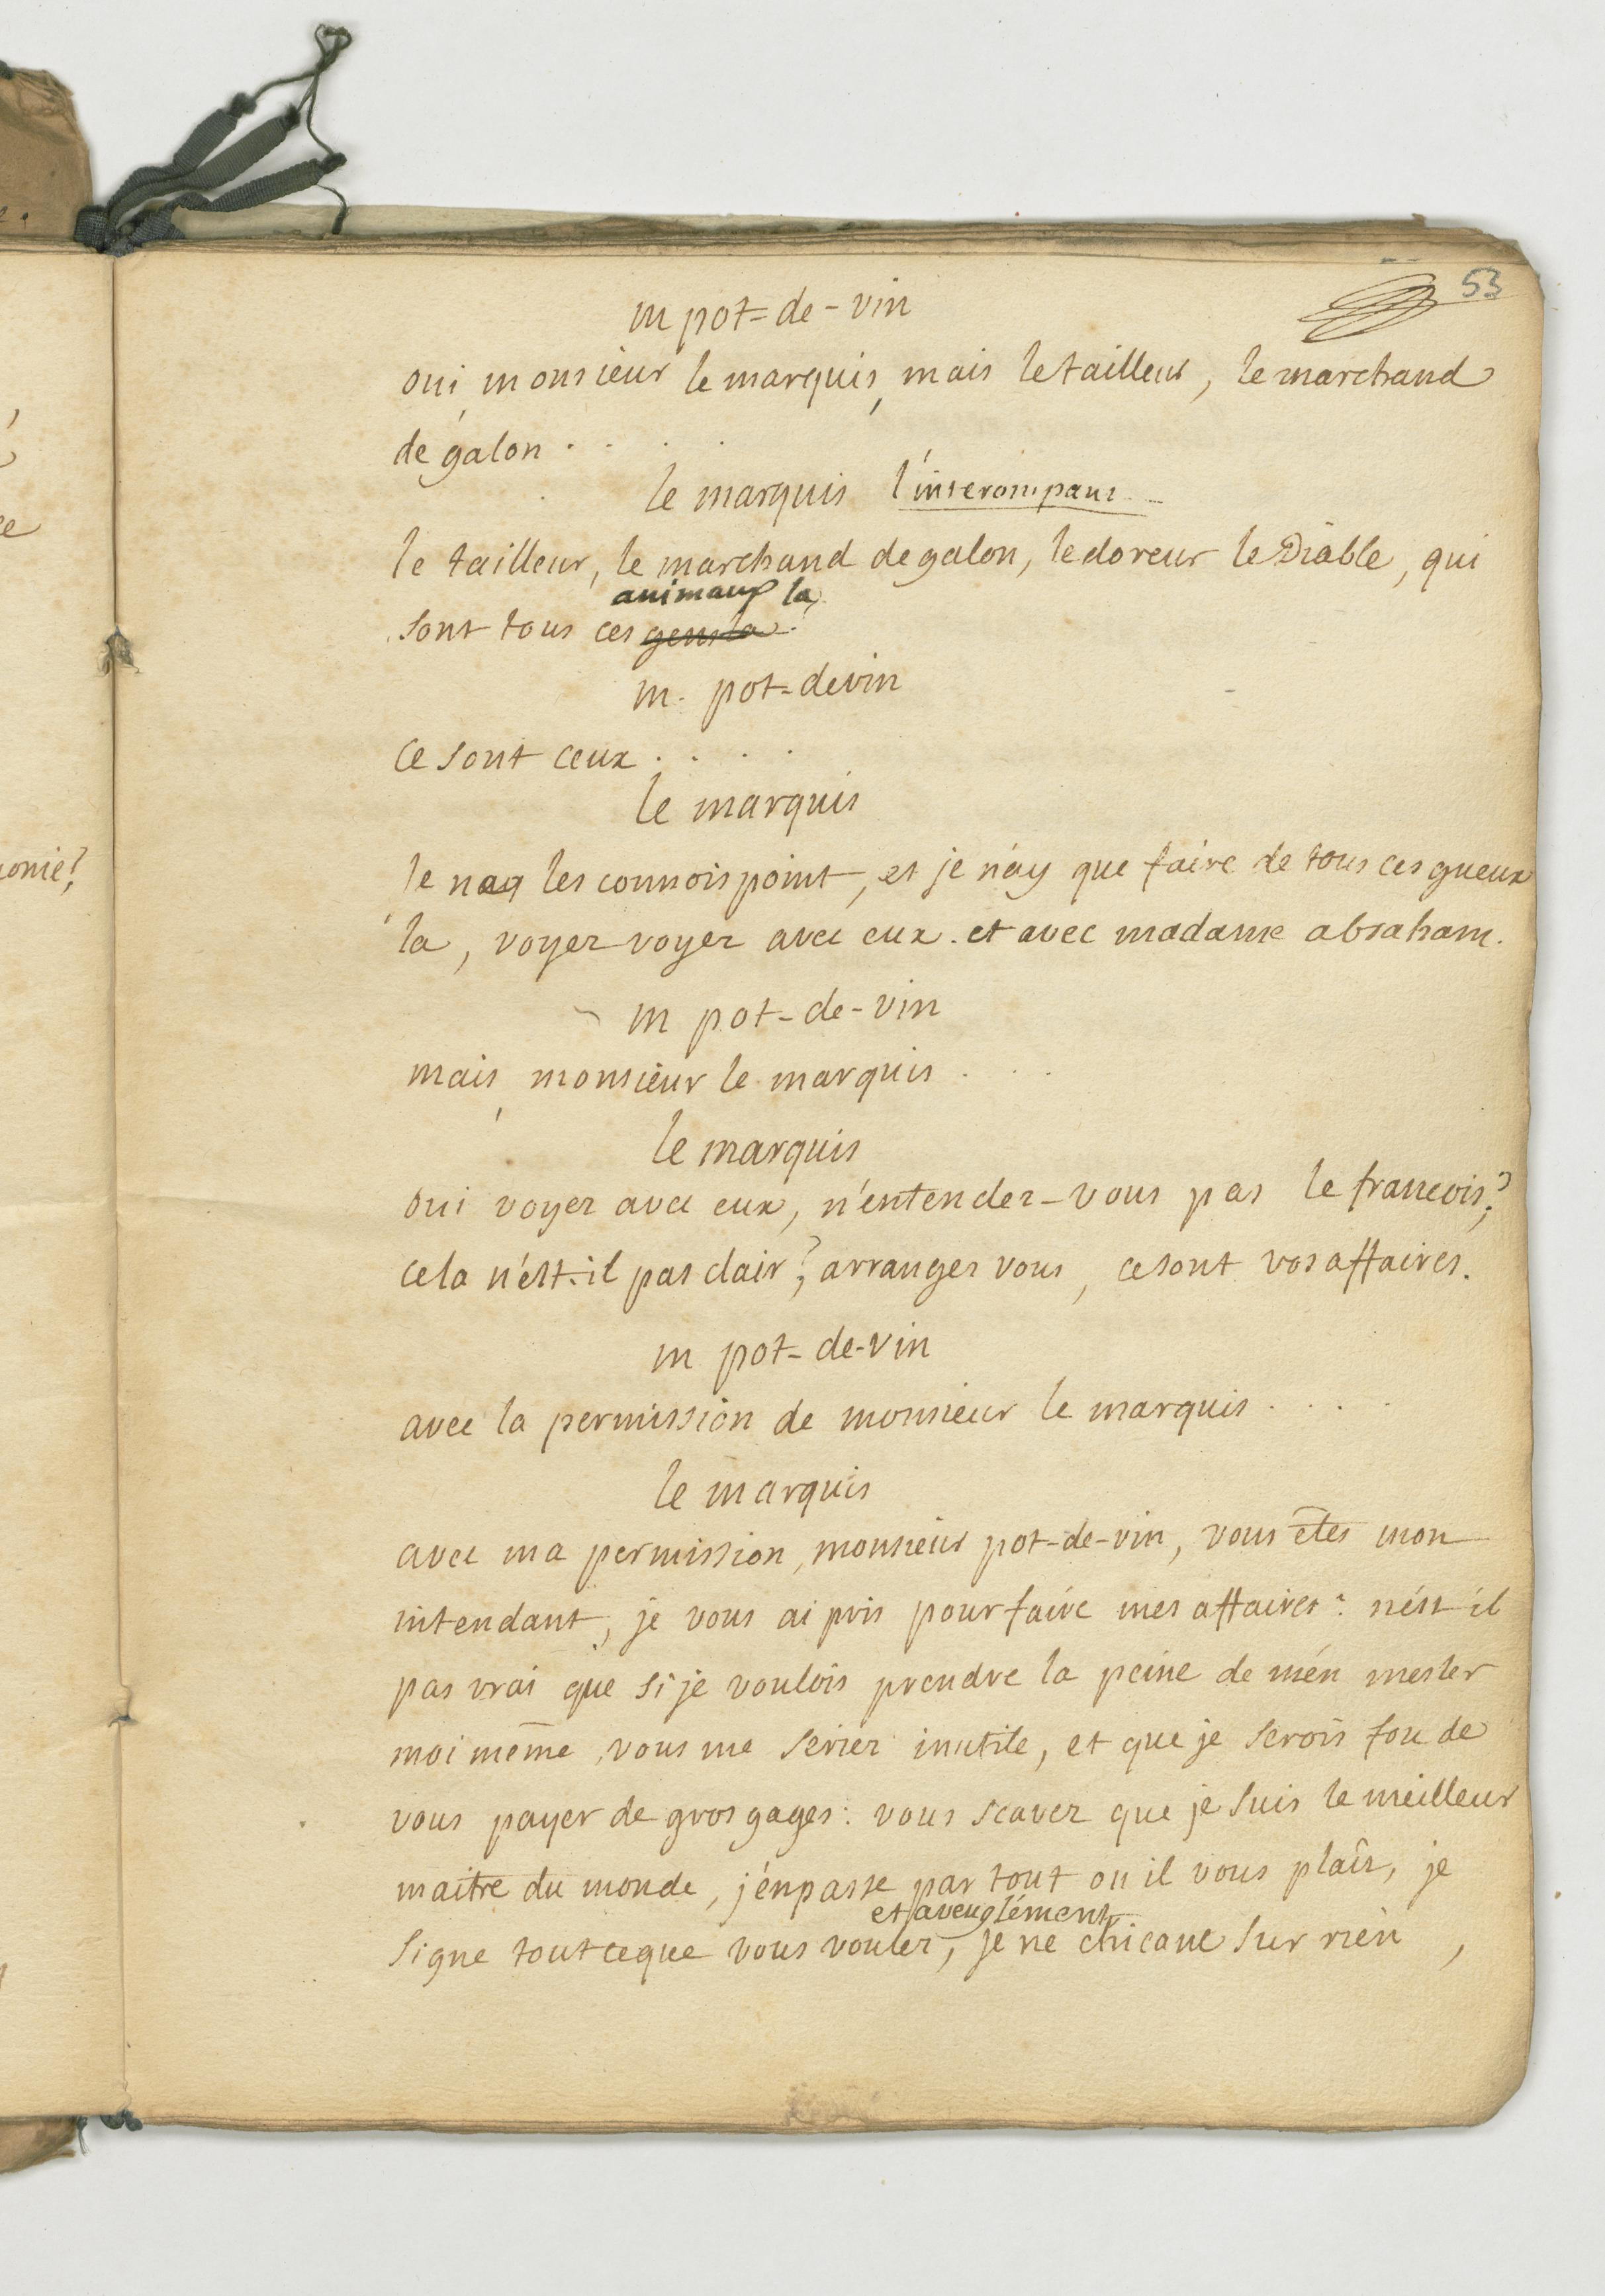 53
m pot=de-vin
oui, monsieur le marquis, mais le tailleur, le marchand
de galon . . . .
le marquis l'interompant
le tailleur, le marchand de galon, le doreur le Diable, qui
animaux la
sont tous ces gens la?
m. pot=devin
ce sont ceux . . . .
le marquis
je les connois point, et je n'ay que faire de tous ces gueux
la, voyez voyez avec eux. et avec madame abraham.
m pot-de-vin
mais, monsieur le marquis . . .
le marquis
oui voyez avec eux, n'entendez-vous pas le francois?
cela n'est-il pas clair? arrangez vous, ce sont vos affaires.
m pot-de-vin
avec la permission de monsieur le marquis . . . .
le marquis
avec ma permission, monsieur pot-de-vin, vous êtes mon
intendant, je vous ai pris pour faire mes affaires: n'est il
pas vrai que si je voulois prendre la peine de m'en mesler
moi même, vous me seriez inutile, et que je serois fou de
vous payer de gros gages: vous scavez que je suis le meilleur
maitre du monde, j'en passe par tout ou il vous plaît, je
et aveuglément
signe tout ce que vous voulez, je ne chicane sur rien,
onie?